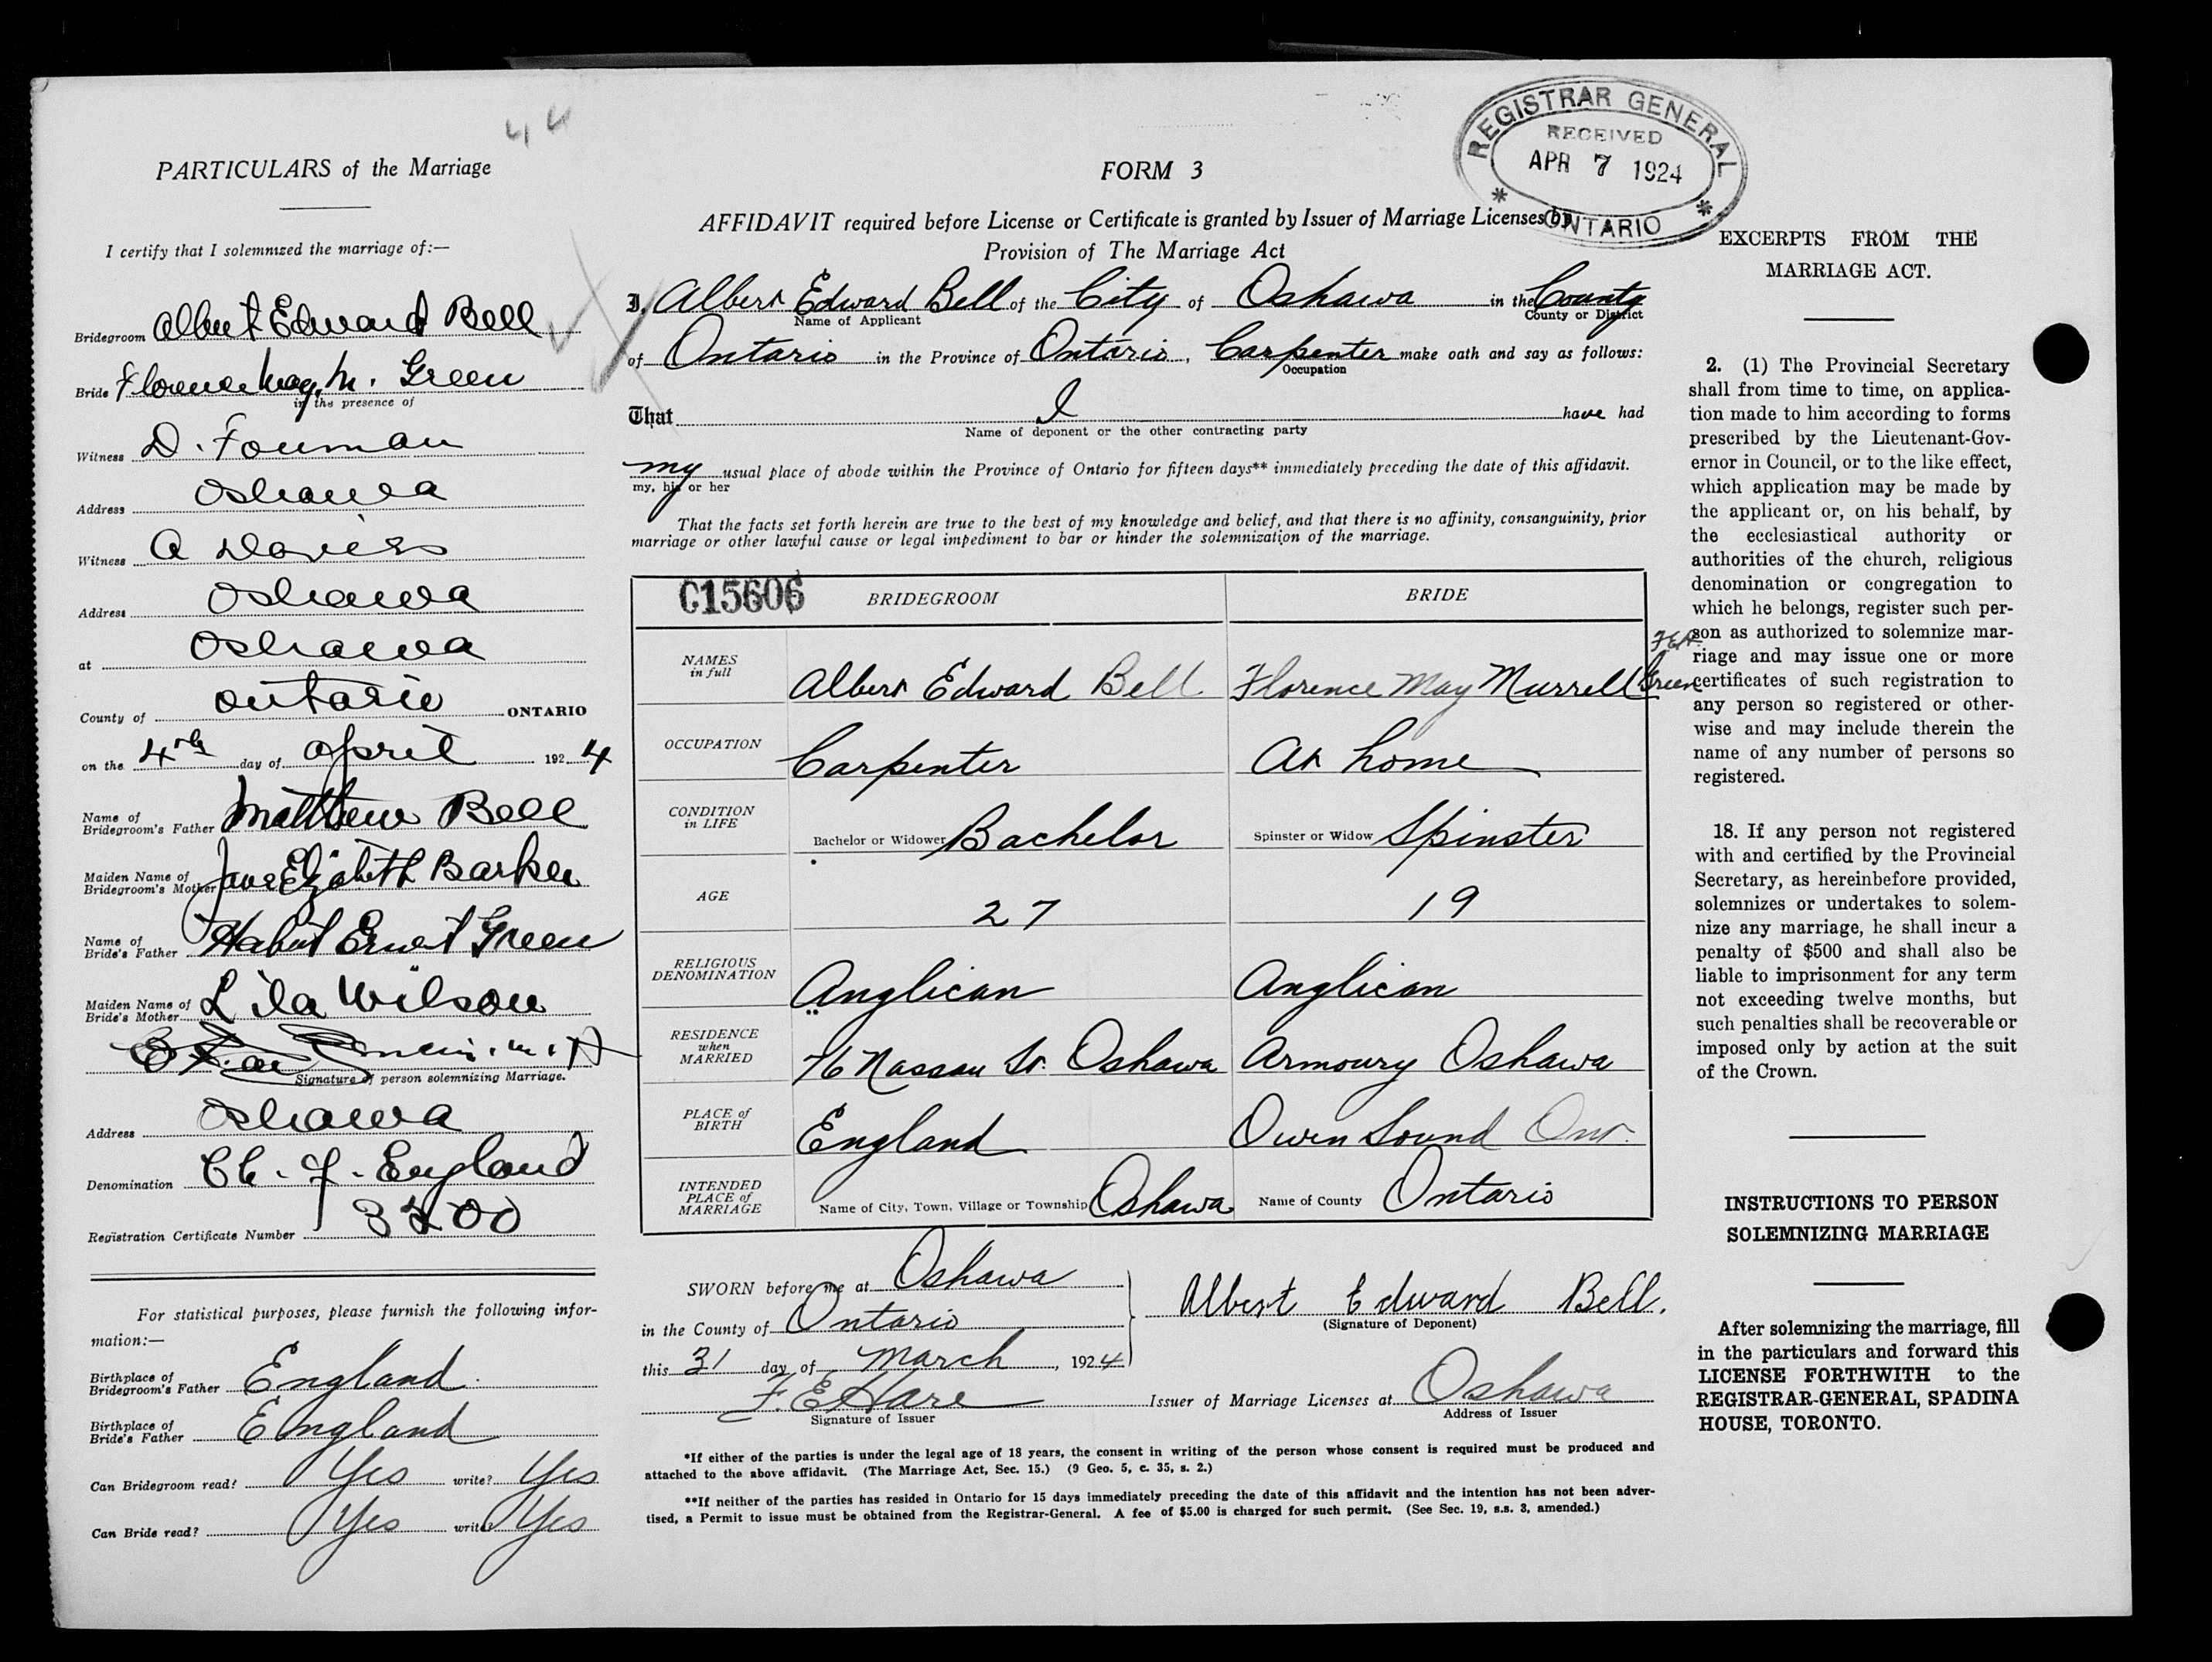 44
PARTICULARS of the Marriage
I certify that I solemnized the marriage of:—
Bridegroom Albert Edward Bell
Bride Florence May M. Green
in the presence of
Witness D. Fouman
Address Oshawa
Witness A Davies
Address Oshawa
at Oshawa
County of Ontario ONTARIO
on the 4th day of April 1924
Name of
Bridegroom's Father Matthew Bell
Maiden Name of
Bridegroom's Mother Jane Elizabeth Barker
Name of
Bride's Father Ernest Green
Maiden Name of
Bride's Mother Lila Wilson
Signature of person solemnizing Marriage.
Address Oshawa
Denomination Ch. of England
Registration Certificate Number
For statistical purposes, please furnish the following infor-
mation:—
Birthplace of
Bridegroom's Father England
Birthplace of
Bride's Father England
Can Bridegroom read? Yes write? Yes
Can Bride read? Yes write Yes
FORM 3
REGISTRAR GENERAL
RECEIVED
APR 7 1924
* ONTARIO *
AFFIDAVIT required before License or Certificate is granted by Issuer of Marriage Licenses by
Provision of The Marriage Act
I, Albert Edward Bell of the City of Oshawa in the County
Name of Applicant County or District
of Ontario in the Province of Ontario, Carpenter make oath and say as follows:
Occupation
That I have had
Name of deponent or the other contracting party
my usual place of abode within the Province of Ontario for fifteen days** immediately preceding the date of this affidavit.
my, his or her
That the facts set forth herein are true to the best of my knowledge and belief, and that there is no affinity, consanguinity, prior
marriage or other lawful cause or legal impediment to bar or hinder the solemnization of the marriage.
C15606 BRIDEGROOM BRIDE
NAMES
in full
Albert Edward Bell Florence May Murrell Green
F.E.H.
OCCUPATION
Carpenter At home
CONDITION
in LIFE
Bachelor or Widower Bachelor Spinster or Widow Spinster
AGE
27 19
RELIGIOUS
DENOMINATION
Anglican Anglican
RESIDENCE
when
MARRIED
76 Nassau St. Oshawa Armoury Oshawa
PLACE of
BIRTH
England Owen Sound Ont.
INTENDED
PLACE of
MARRIAGE
Name of City, Town, Village or Township Oshawa Name of County Ontario
SWORN before me at Oshawa
in the County of Ontario
this 31 day of March, 1924
F. E. Hare
Signature of Issuer
Albert Edward Bell.
(Signature of Deponent)
Issuer of Marriage Licenses at Oshawa
Address of Issuer
*If either of the parties is under the legal age of 18 years, the consent in writing of the person whose consent is required must be produced and
attached to the above affidavit. (The Marriage Act, Sec. 15.) (9 Geo. 5, c. 35, s. 2.)
**If neither of the parties has resided in Ontario for 15 days immediately preceding the date of this affidavit and the intention has not been adver-
tised, a Permit to issue must be obtained from the Registrar-General. A fee of $5.00 is charged for such permit. (See Sec. 19, s.s. 3, amended.)
EXCERPTS FROM THE
MARRIAGE ACT.
2. (1) The Provincial Secretary
shall from time to time, on applica-
tion made to him according to forms
prescribed by the Lieutenant-Gov-
ernor in Council, or to the like effect,
which application may be made by
the applicant or, on his behalf, by
the ecclesiastical authority or
authorities of the church, religious
denomination or congregation to
which he belongs, register such per-
son as authorized to solemnize mar-
riage and may issue one or more
certificates of such registration to
any person so registered or other-
wise and may include therein the
name of any number of persons so
registered.
18. If any person not registered
with and certified by the Provincial
Secretary, as hereinbefore provided,
solemnizes or undertakes to solem-
nize any marriage, he shall incur a
penalty of $500 and shall also be
liable to imprisonment for any term
not exceeding twelve months, but
such penalties shall be recoverable or
imposed only by action at the suit
of the Crown.
INSTRUCTIONS TO PERSON
SOLEMNIZING MARRIAGE
After solemnizing the marriage, fill
in the particulars and forward this
LICENSE FORTHWITH to the
REGISTRAR-GENERAL, SPADINA
HOUSE, TORONTO.